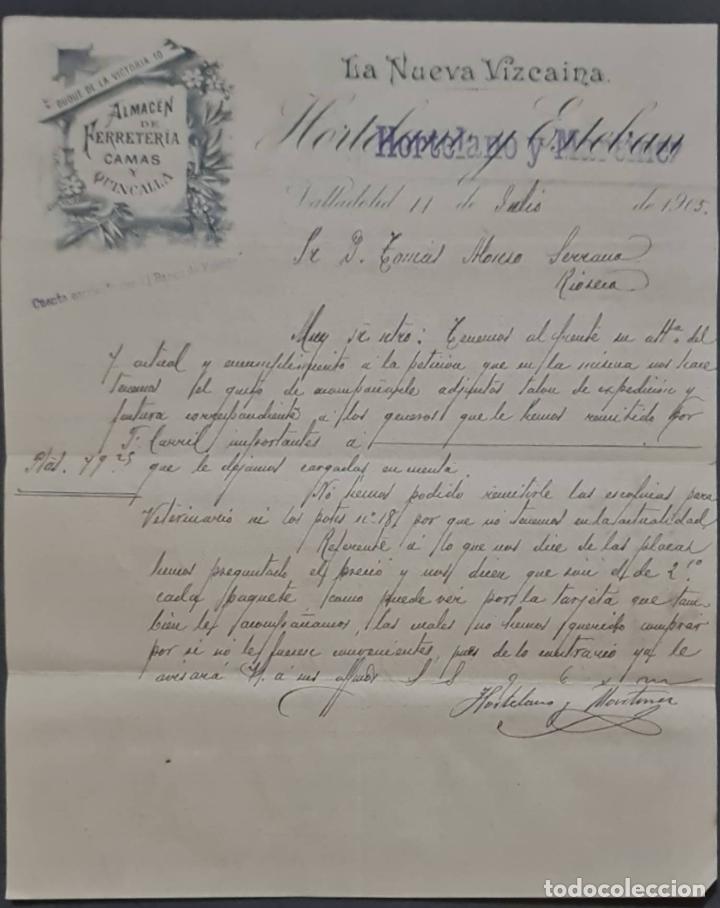 DUQUE DE LA VICTORIA 10
ALMACÉN
DE
FERRETERÍA
CAMAS
Y
QUINCALLA
La Nueva Vizcaina.
Hortelano y Esteban
Hortelano y Martinez
Valladolid 11 de Julio de 1905.
Sr D. Tomás Alonso Serrano
Rioseco
Muy Sr ntro: Tenemos al frente su attª. del
7 actual y cumplimiento a la peticion que en la misma nos hace
tenemos el gusto de acompañarle adjuntos talon de expedición y
factura correspondiente a los generos que le hemos remitido por
F. Carril, importantes a
Ptas. 79.25 que le dejamos cargadas en cuenta.
No hemos podido remitirle las escofinas para
Veterinario ni los potes nº. 18, por que no tenemos en la actualidad
Referente á lo que nos dice de las placas
hemos preguntado el precio y nos dicen que son de 2
cada paquete como puede ver por la tarjeta que tam-
bien le acompañamos, las cuales no hemos querido comprar
por si no le fuesen convenientes, pues de lo contrario ya le
avisará V. á sus affmos S S
Hortelano y Martinez
todocoleccion